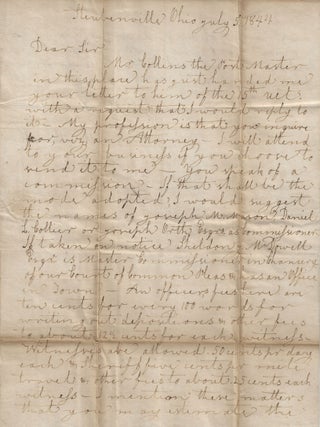 Steubenville Ohio July 5 1844
Dear Sir
Mr Collins the Post Master
in this place has just handed me
your letter to him of the 5th ult
with a request that I would reply to
it – My profession is that you inquire
for, viz, an Attorney – I will attend
to your business if you choose to
send it to me – You speak of a
commission – If that shall be the
mode adopted, I would suggest
the names of Joseph Daniel
L Collier or Joseph Orth Esqrs as commissioner
If taken on notice Sheldon Mc Dowell
Esqr is Master Commissioner in Chancery
of our Court of Common Pleas & has an Office
in Town – An officers fees here are
ten cents for every 100 words for
writing out depositions & other fees
to about 12½ cents for each witness
Witnesses are allowed 50 cents pr day
each & Sheriff five cents per mile
travel & other fees to about 25 cents each
witness – I mention these matters
that you may estimate the